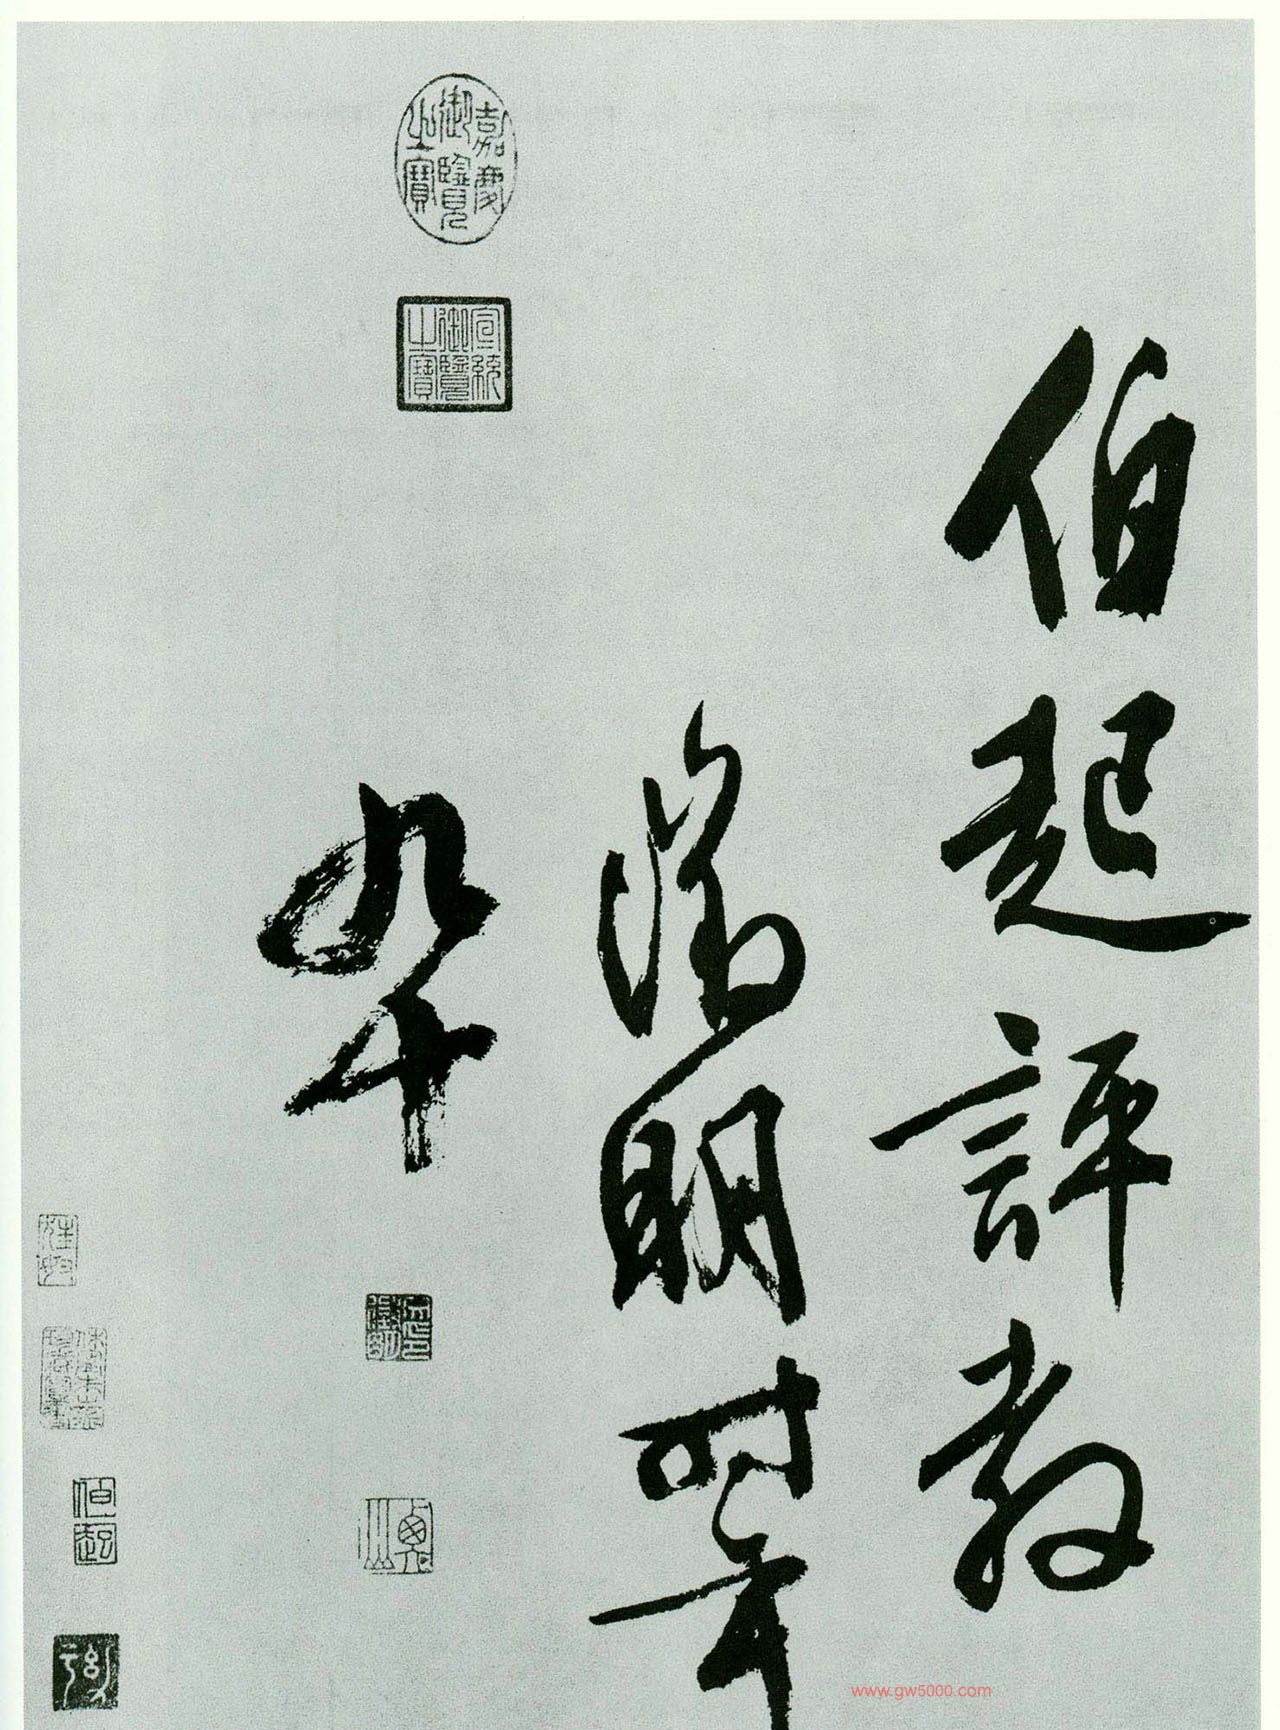 伯起評教
徵明時年
九十
嘉慶御覽之寶
宣統御覽之寶
伯起
www.gw5000.com